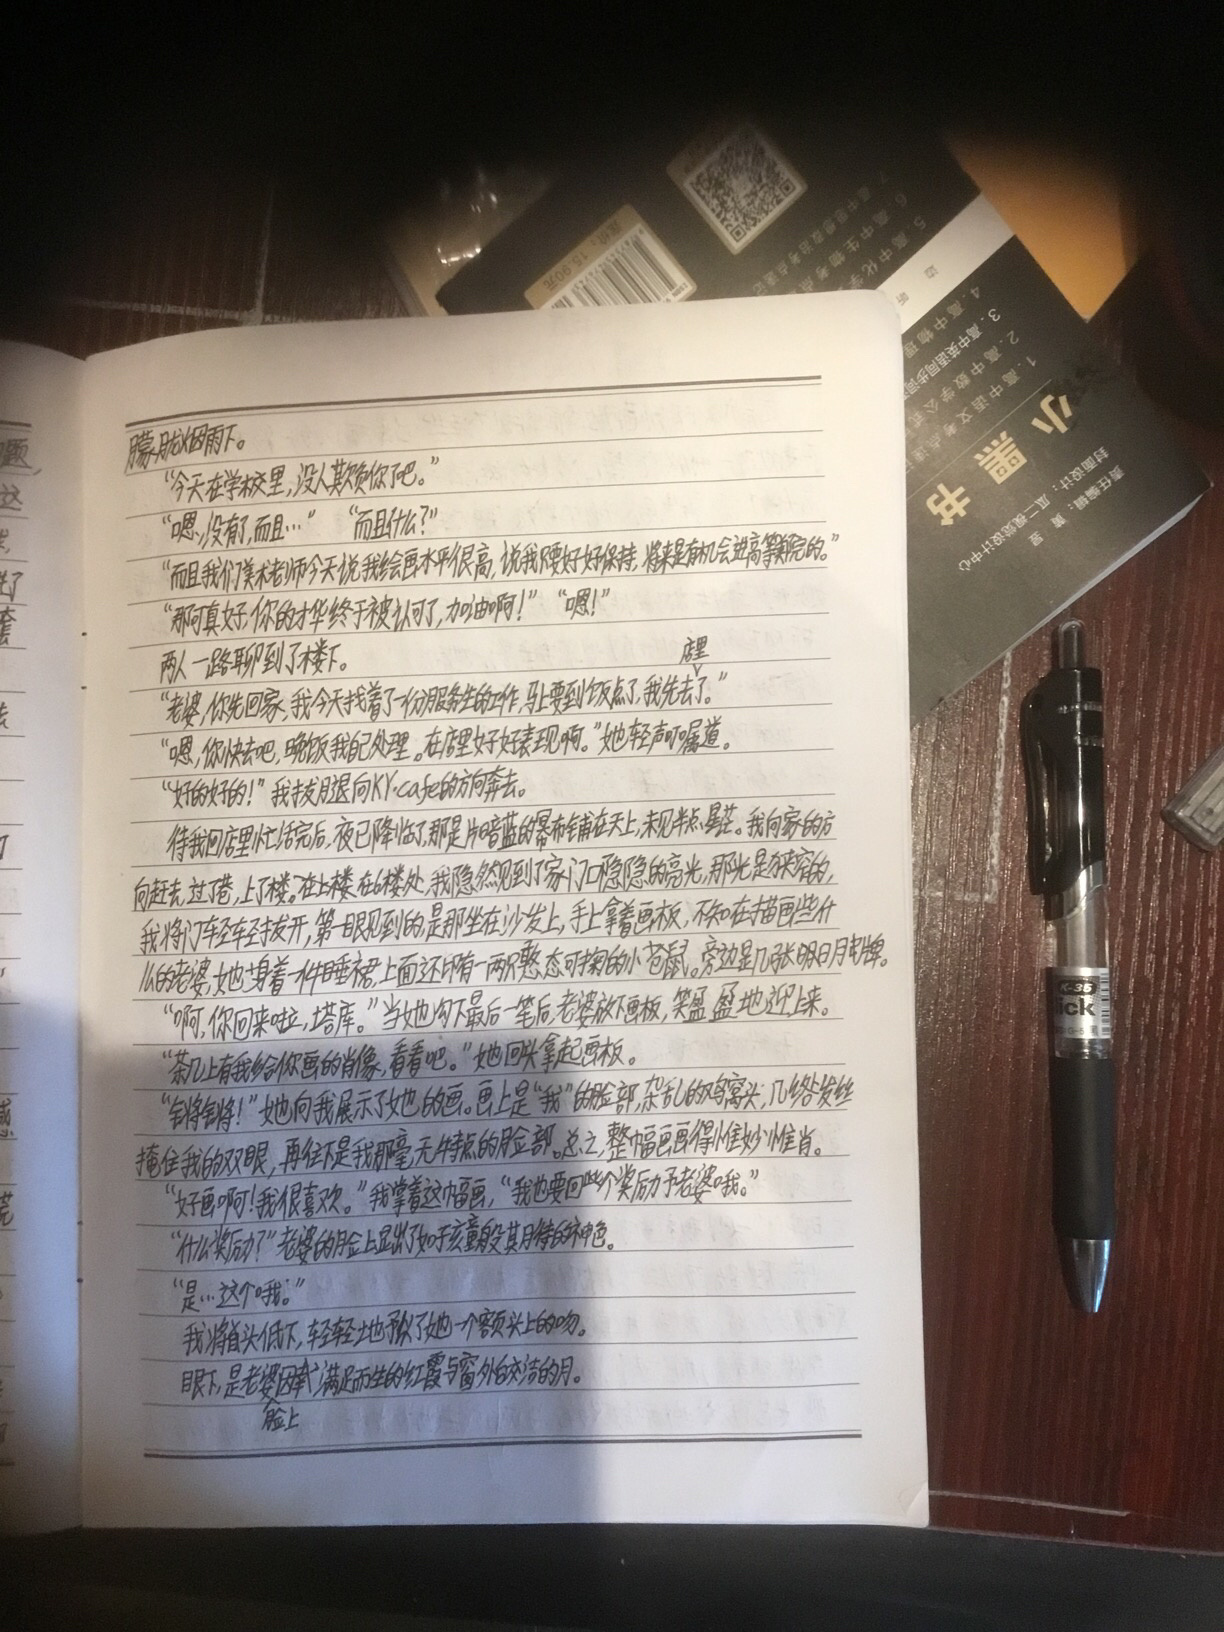 朦胧烟雨下。
“今天在学校里，没人欺负你了吧。”
“嗯，没有了，而且…” “而且什么？”
“而且我们美术老师今天说我绘画水平很高，说我只要好好保持，将来是有机会进高等美院的。”
“那可真好，你的才华终于被认可了，加油啊！” “嗯！”
两人一路聊到了楼下。
店里
“老婆，你先回家，我今天找着了一份服务生的工作，马上要到饭点了，我先去了。”
“嗯，你快去吧，晚饭我自己处理。在店里好好表现啊。”她轻声叮嘱道。
“好的好的！”我拔腿向KY·cafe的方向奔去。
待我回店里忙活完后，夜已降临了，那是片暗蓝的幕布铺在天上，未见半点星茫。我向家的方
向赶去，过了巷，上了楼。在上楼在6楼处，我隐然见到了家门口隐隐的亮光，那光是从来容的，
我将门轻轻拔开，第一眼见到的，是那坐在沙发上，手上拿着画板，不知在描画些什
么的老婆，她身着一件睡裙，上面还印有一两只憨态可掬的小苍鼠。旁边是几张明日月卡牌。
“啊，你回来啦，塔库。”当她勾下最后一笔后，老婆放下画板，笑盈盈地迎上来。
“茶几上有我给你画的肖像，看看吧。”她回头拿起画板。
“锵锵！”她向我展示了她的画。画上是“我”的脸部，杂乱的鸡窝头，几络发丝
掩住我的双眼，再往下是我那毫无特点的脸部。总之，整幅画画得惟妙惟肖。
“好画啊！我很喜欢。”我掌着这幅画，“我也要回些个奖励予老婆哦。”
“什么奖励？”老婆的脸上显出了如于孩童般其期待的神色。
“是…这个哦。”
我将首头低下，轻轻地予以了她一个额头上的吻。
眼下，是老婆因幸满足而生的红霞与窗外白皎洁的月。
脸上
小黑书
1.高中语文
2.高中数学公式
3.高中英语同步词
4.高中物理
5.高中化学
6.高中生物考点
7.高中思想政治考点速记
封面设计：风二视觉设计中心
责任编辑：萧
定价：15.90元
K-35